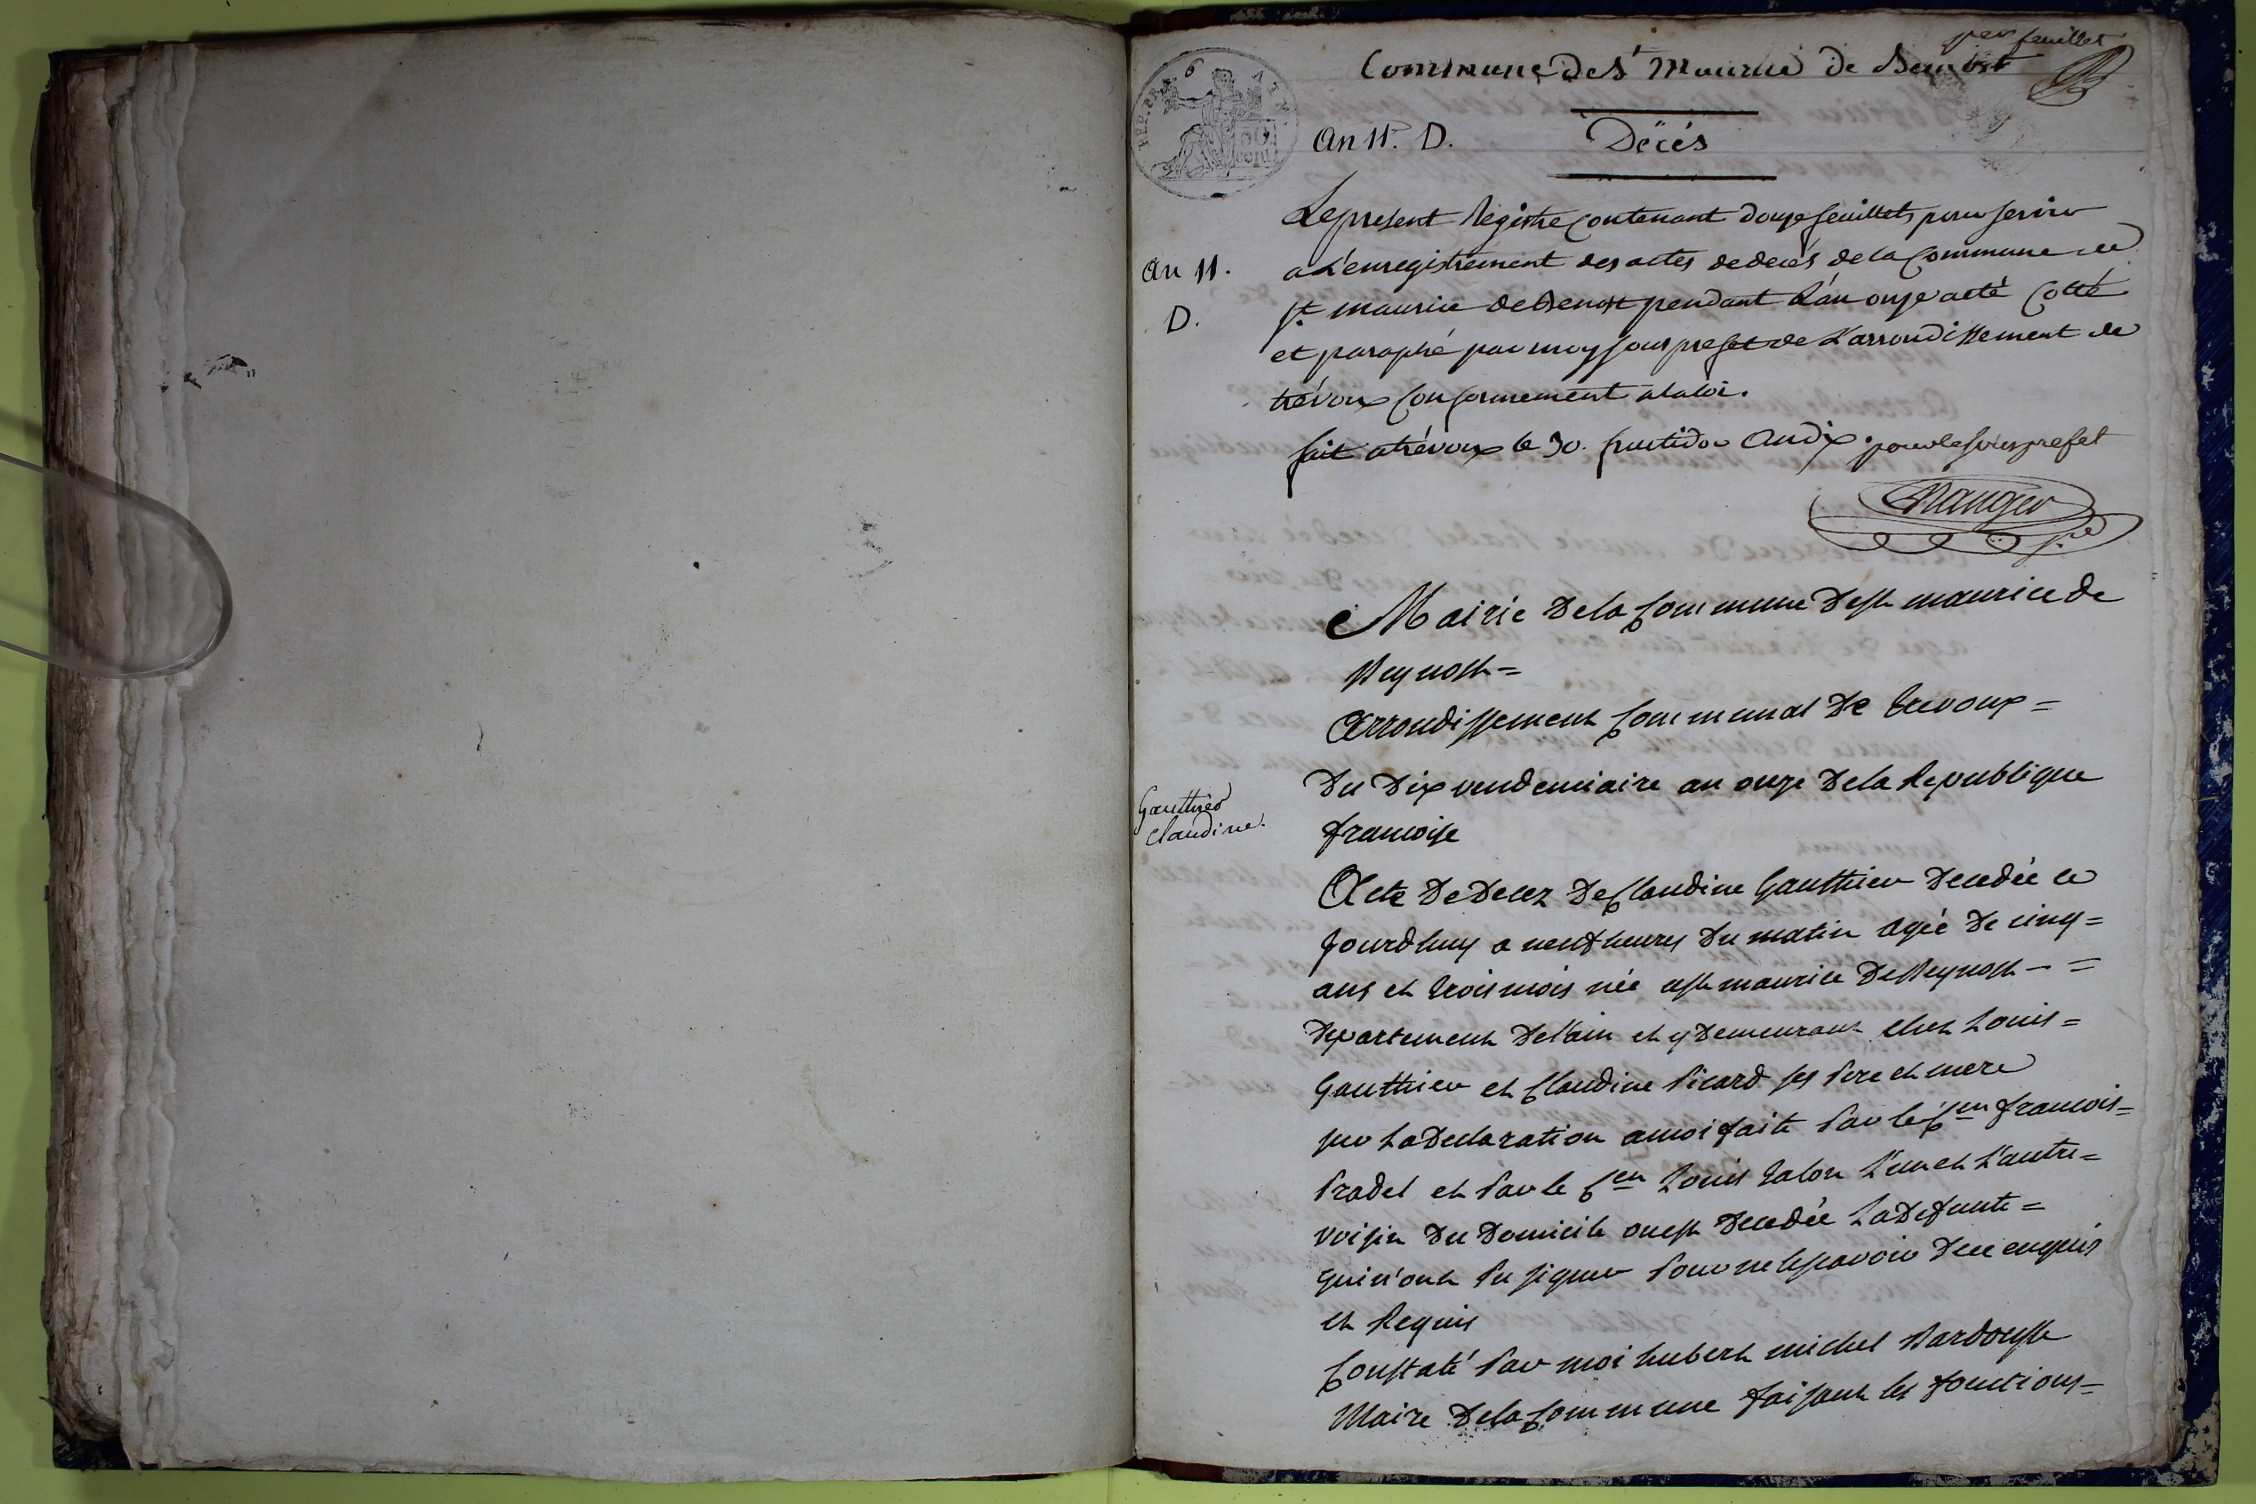 per feuillet
Commune de St Maurice de Benost
REP. FRA.
50
cent
An 11. D. Décés
Le present Registre contenant douze feuillets pour servir
a L'enregistrement des actes de decés de la Commune de
An 11.
D.
St maurice de Benost pendant L'an onze a eté Cotté
et paraphé par moy sous prefet de L'arrondissement de
trévoux Conformement a la loi.
fait a trévoux le 30. fructidor An dix. pour le sous prefet
Mairie De la Commune De st maurice de
Beynost=
Arrondissement Communal De trevoux=
Du Dix vendemiaire an onze De la Republique
francoise
Gauthier
Claudine.
Acte De Decez De Claudine Gauthier Decedée ce
jourdhuy a neuf heures Du matin agée De cinq=
ans et trois mois née a st maurice De Beynost - =
Departement De l'ain et y Demeurant chez Louis=
Gauthier et Claudine Picard ses Pere et mere
sur La Declaration a moi faite Par le Cen francois=
Pradel et Par le Cen Louis Talon L'un et L'autre=
voisin Du Domicile ou est Decedée La Defunte=
qui n'ont Su signer Pour ne le scavoir De ce enquis
et Requis
Constaté Par moi hubert michel Bardousse
Maire De la Commune faisant les fonctions=